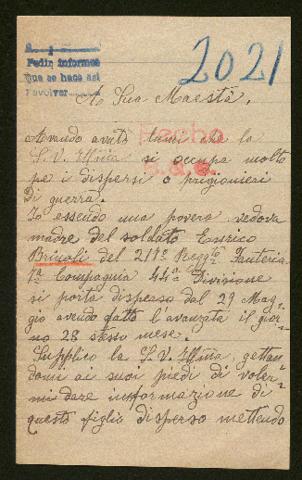 Pedir informes
Que se hace así
Devolver
2021
A Sua Maestà,
Hecho
Avendo avuto lumi che la
S. V. Illma si occupa molto
pe i dispersi o prigionieri
di guerra.
Io essendo una povera vedova
madre del soldato Enrico
Brivoli del 211º Reggto Fanteria
1ª Compagnia 44ª Divisione
si porta disperso dal 29 Mag-
gio avendo fatto l'avanzata il gior-
no 28 stesso mese.
Supplico la S. V. Illma, gettan-
domi ai suoi piedi di voler-
mi dare informazione di
questo figlio disperso mettendo